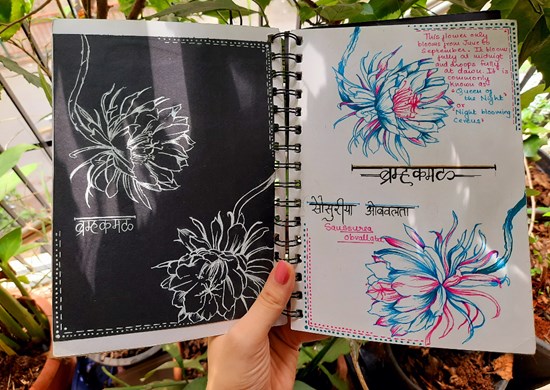 ब्रम्हकमळ
This flower only
blooms from June to
September. It blooms
fully at midnigt
and droops fully
at dawn. It is
commonly
known as
"Queen of
the Night"
or
"Night blooming
Cereus"
ब्रम्हकमळ
सौसुरीया ओबवलता
Saussurea
obvallata